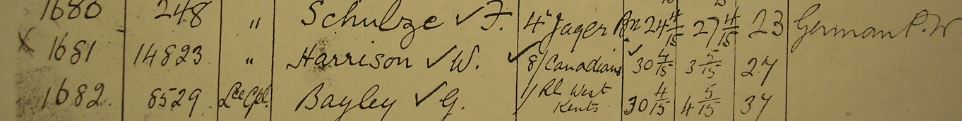 1680 248 " Schulze ✓ F. 4th Jager Bn 24 4/15 27 4/15 23 German P.W
x 1681 14823 " Harrison ✓ W. ✓ 8/Canadians ✓ 30 4/15 3 5/15 27
1682 8529 Lce Cpl. Bayley ✓ G. 1/Rl West Kents 30 4/15 4 5/15 37